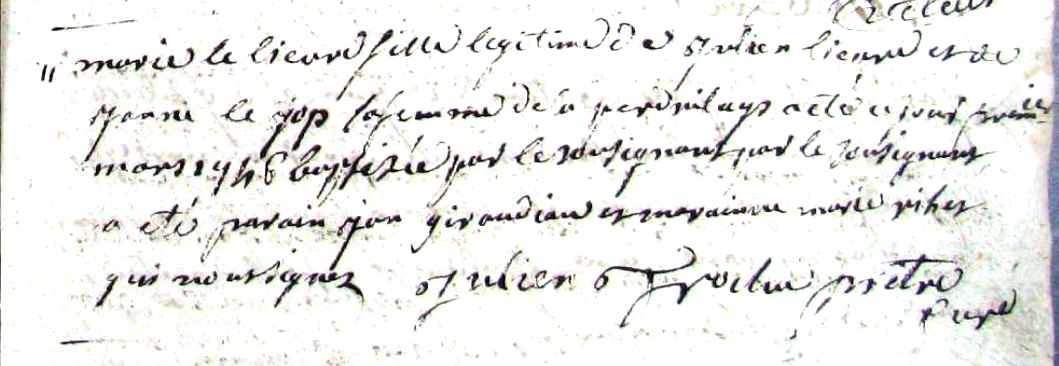 marie le lieurd fille legitime de Julien lieurd et de
Jenne le jop sa femme de a été ce jour
mars 1746 baptisée par le sousignant par le sousignant
a été parain jan giraudiau et maraine marie rihet
qui nontsignez Julien prêtre
curé